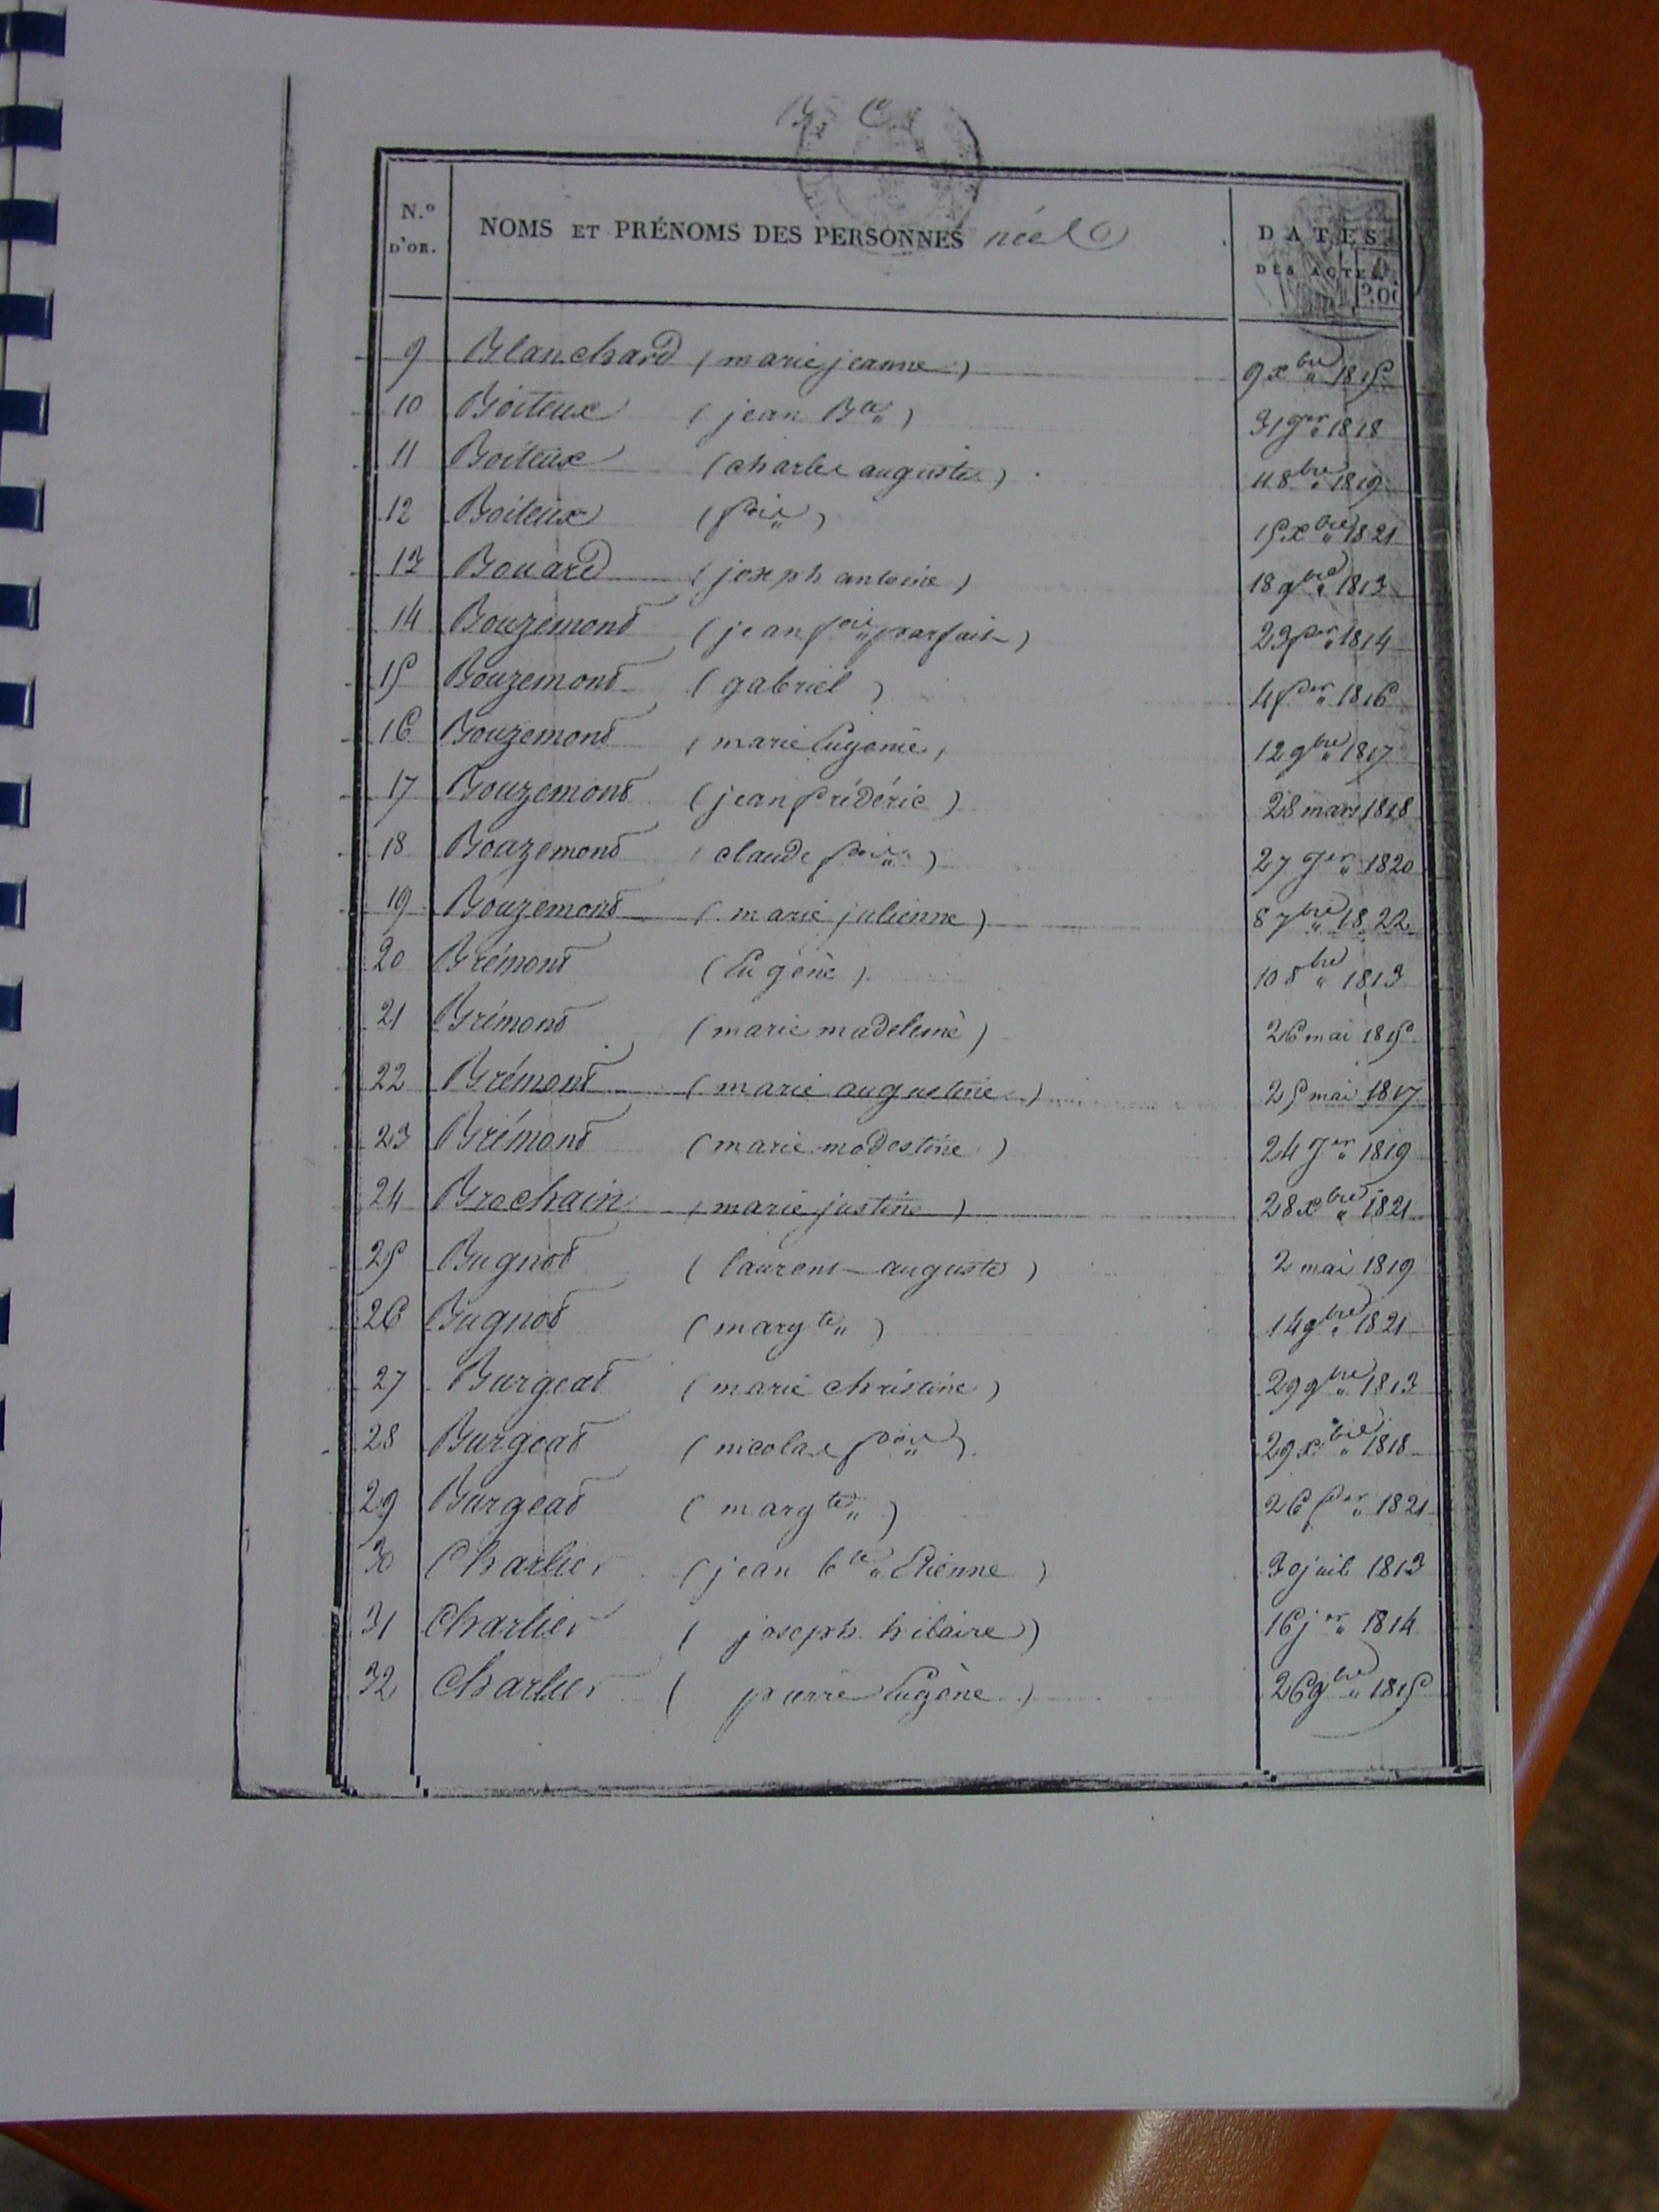 B. C.
N.º D'OR. NOMS ET PRÉNOMS DES PERSONNES nées DATES DES ACTES.
9 Blanchard (marie jeanne) 9 xbre 1815
10 Boiteux (jean Bte) 31 jer 1818
11 Boiteux (charles auguste) 11 8bre 1819
12 Boiteux (fois) 15 xbre 1821
13 Bouard (joseph antoine) 18 9bre 1813
14 Bouzemond (jean fois parfait) 23 fer 1814
15 Bouzemond (gabriel) 4 fer 1816
16 Bouzemond (marie Eugenie) 12 9bre 1817
17 Bouzemond (jean frédéric) 28 mars 1818
18 Bouzemond (claude fois) 27 jer 1820
19 Bouzemond (marie julienne) 8 7bre 1822
20 Brémond (Eugène) 10 8bre 1813
21 Brémond (marie madeleine) 26 mai 1815
22 Brémond (marie augustine) 25 mai 1817
23 Brémond (marie modestine) 24 jer 1819
24 Brochain (marie justine) 28 xbre 1821
25 Bugnot (laurent auguste) 2 mai 1819
26 Bugnot (margte) 14 9bre 1821
27 Burgeat (marie christine) 29 9bre 1813
28 Burgeat (nicolas fois) 29 xbre 1818
29 Burgeat (margte) 26 fer 1821
30 Charlier (jean bte Etienne) 30 juil 1813
31 Charlier (joseph hilaire) 16 jer 1814
32 Charlier (pierre Eugène) 26 9bre 1815